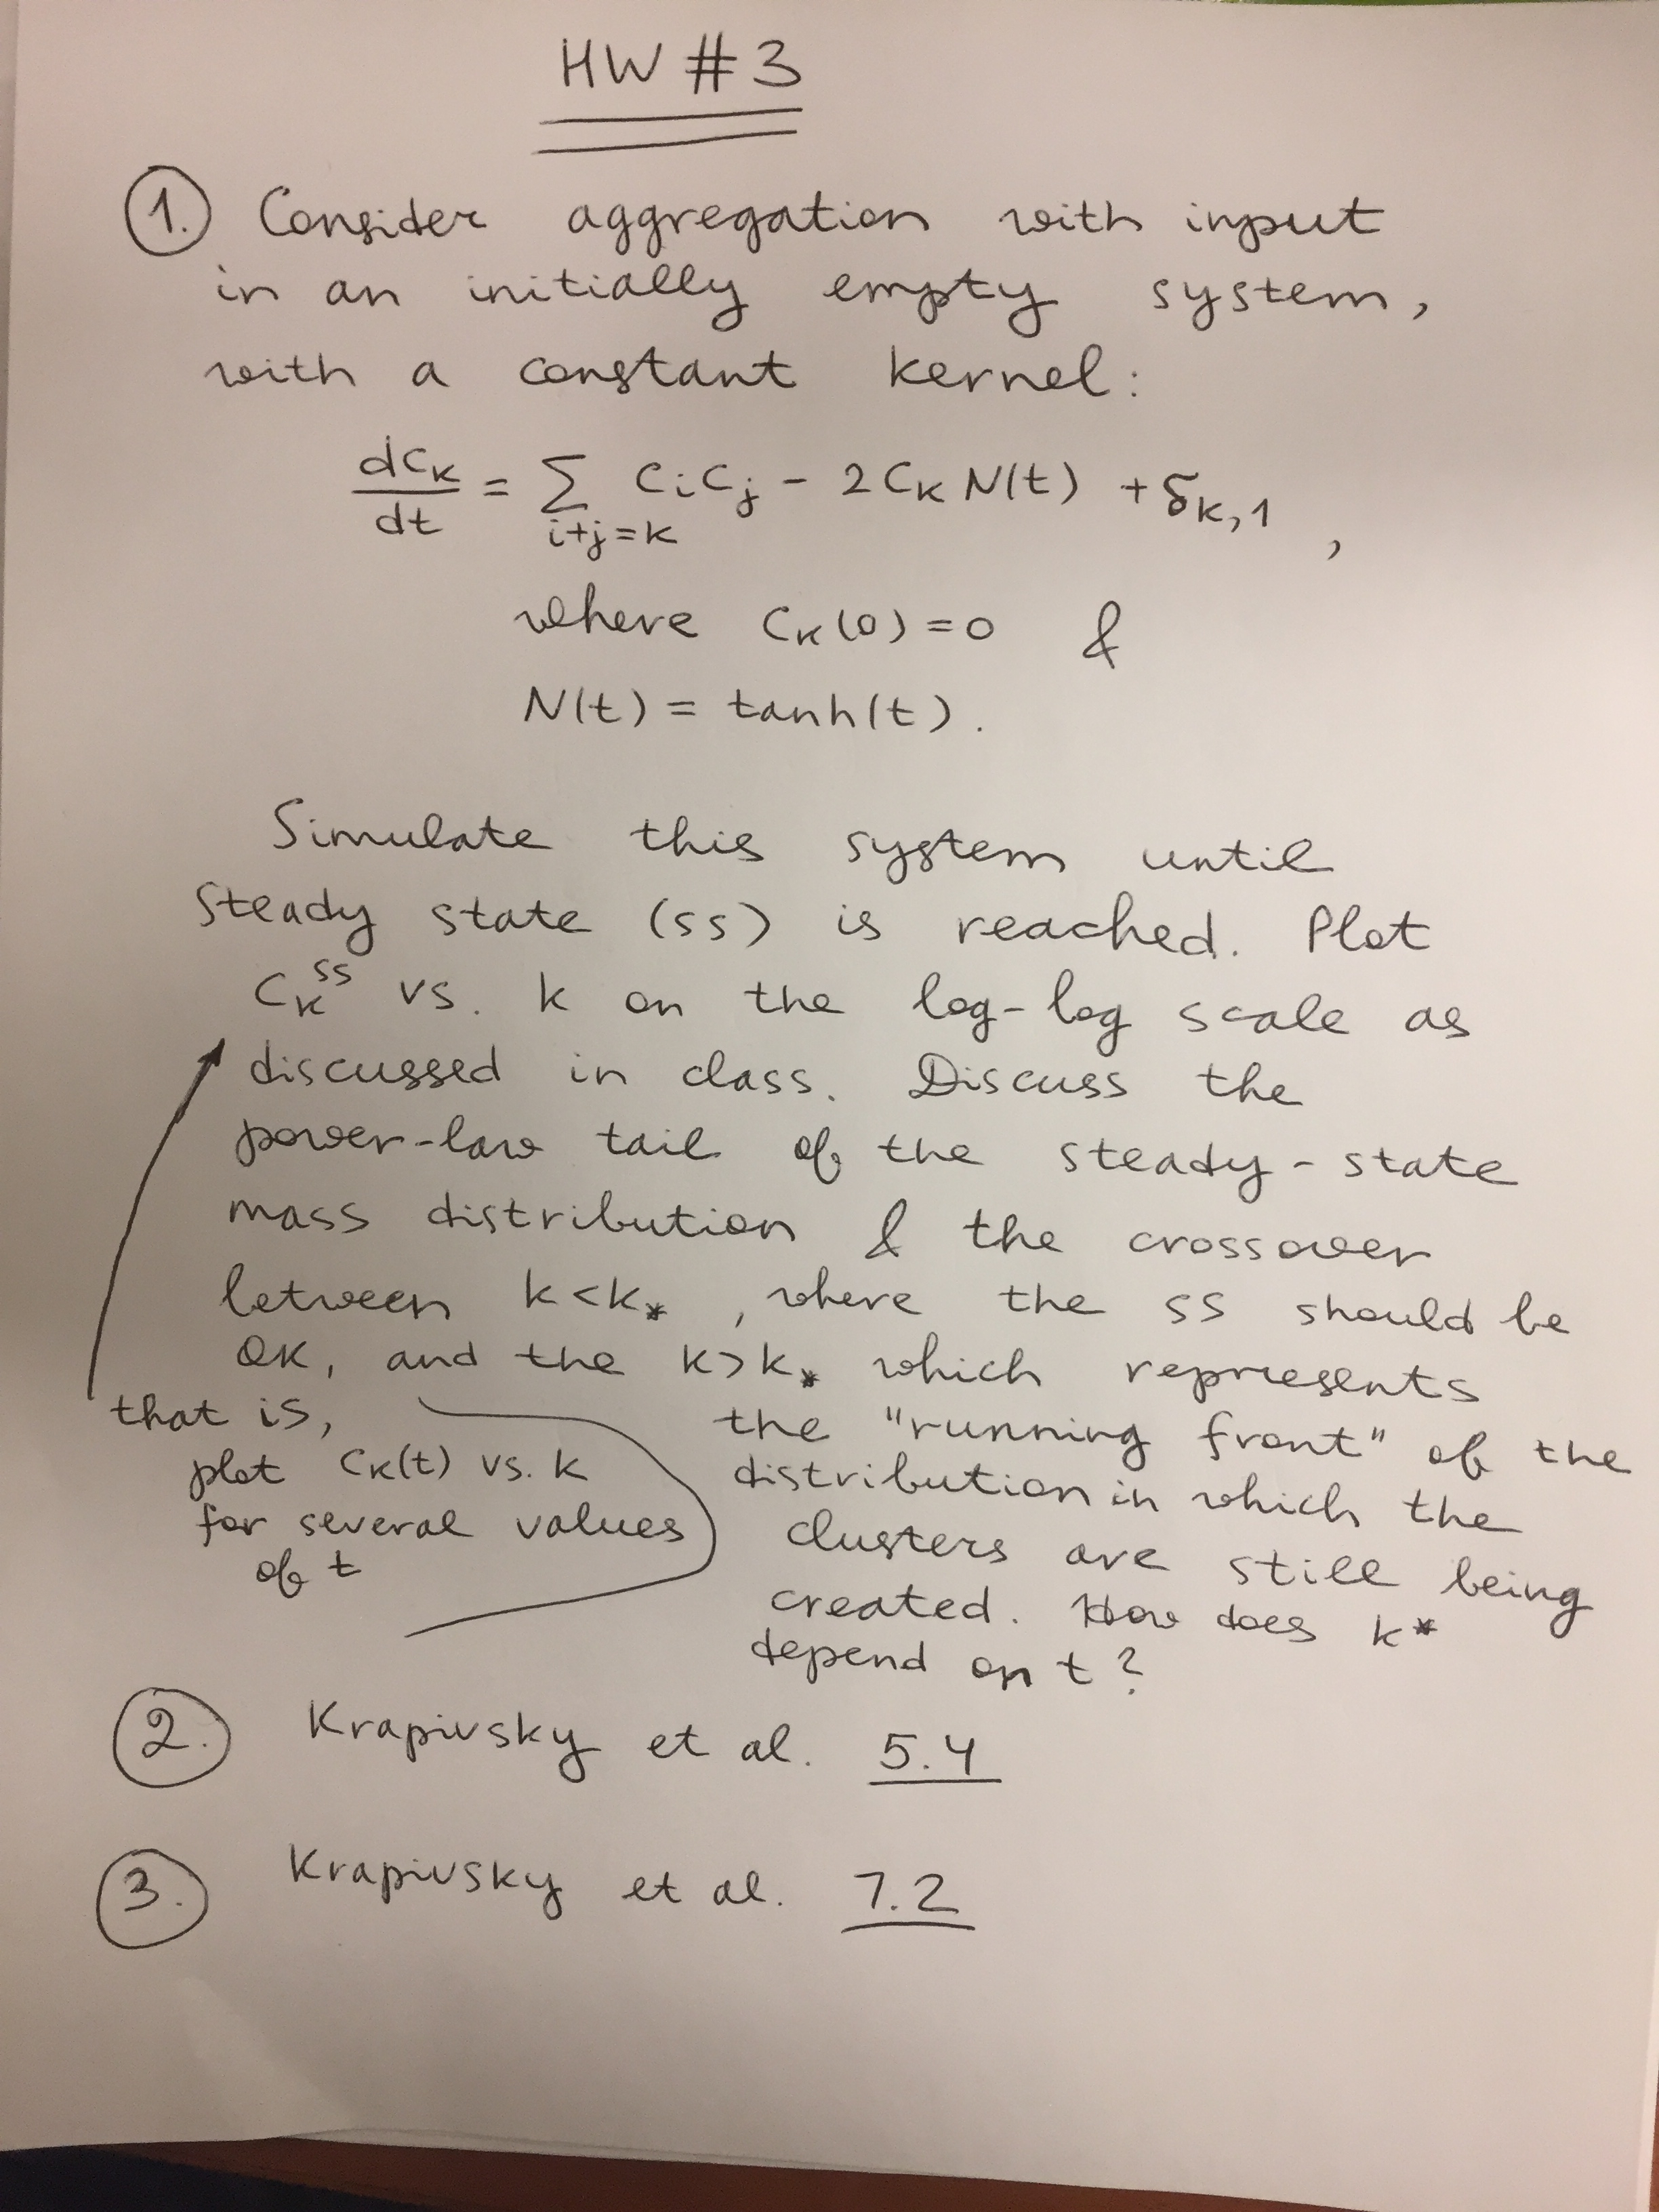 HW #3
1. Consider aggregation with input
in an initially empty system,
with a constant kernel:
dCk/dt = Σ i+j=k CiCj - 2CkN(t) + δk,1 ,
where Ck(0)=0 &
N(t) = tanh(t).
Simulate this system until
steady state (ss) is reached. Plot
Ck^ss vs. k on the log-log scale as
discussed in class. Discuss the
power-law tail of the steady-state
mass distribution & the crossover
between k<k*, where the ss should be
OK, and the k>k* which represents
the "running front" of the
distribution in which the
clusters are still being
created. How does k*
depend on t?
that is,
plot Ck(t) vs. k
for several values
of t
2. Krapivsky et al. 5.4
3. Krapivsky et al. 7.2